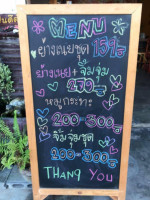 MENU
ย่างเนยชุด 159
ย่างเนย+จิ้มจุ่ม
หมูกระทะ
200-300฿
จิ้มจุ่มชุด
200-300฿
THANG YOU